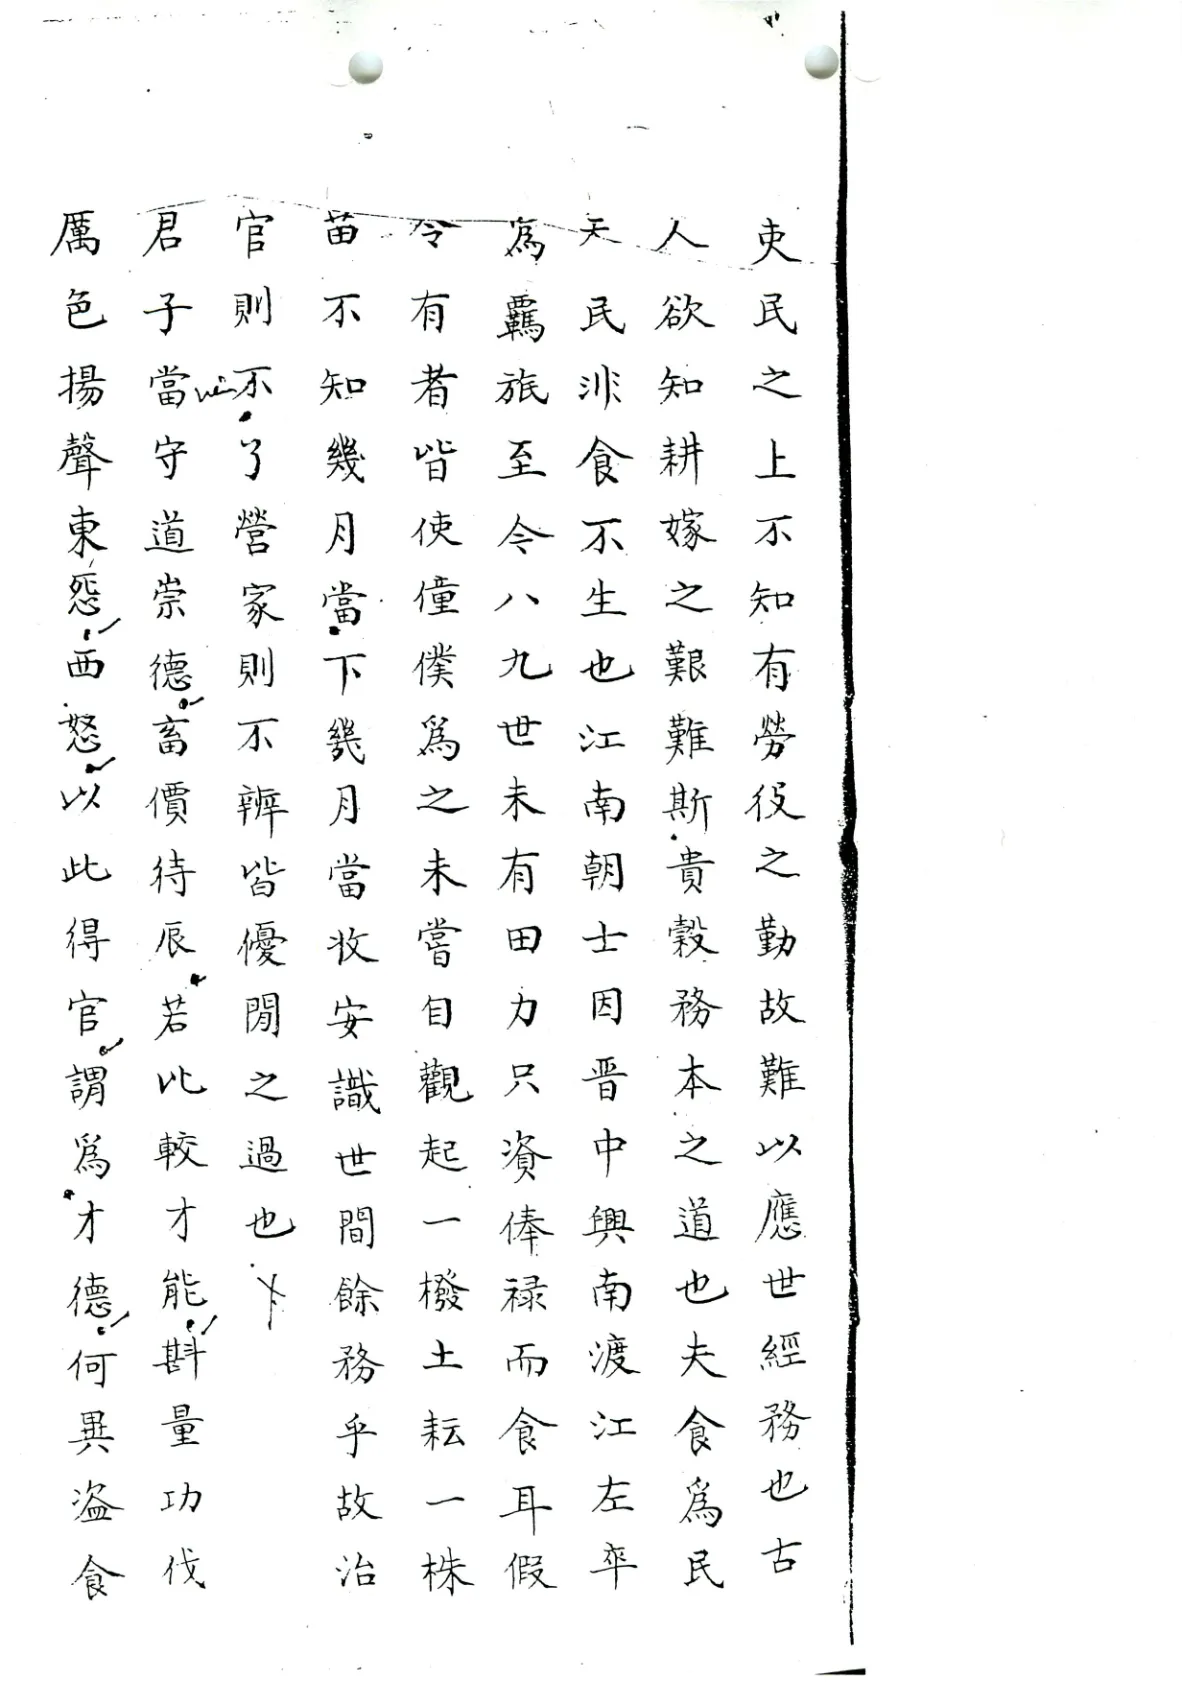 吏民之上不知有勞役之勤故難以應世經務也古
人欲知耕嫁之艱難斯貴穀務本之道也夫食爲民
天民非食不生也江南朝士因晋中興南渡江左卒
爲羈旅至今八九世未有田力只資俸禄而食耳假
令有者皆使僮僕爲之未嘗自觀起一橃土耘一株
苗不知幾月當下幾月當收安識世間餘務乎故治
官則不了營家則不辨皆優閒之過也
君子當守道崇德畜價待辰若比較才能斟量功伐
厲色揚聲東怨西怒以此得官謂爲才德何異盗食